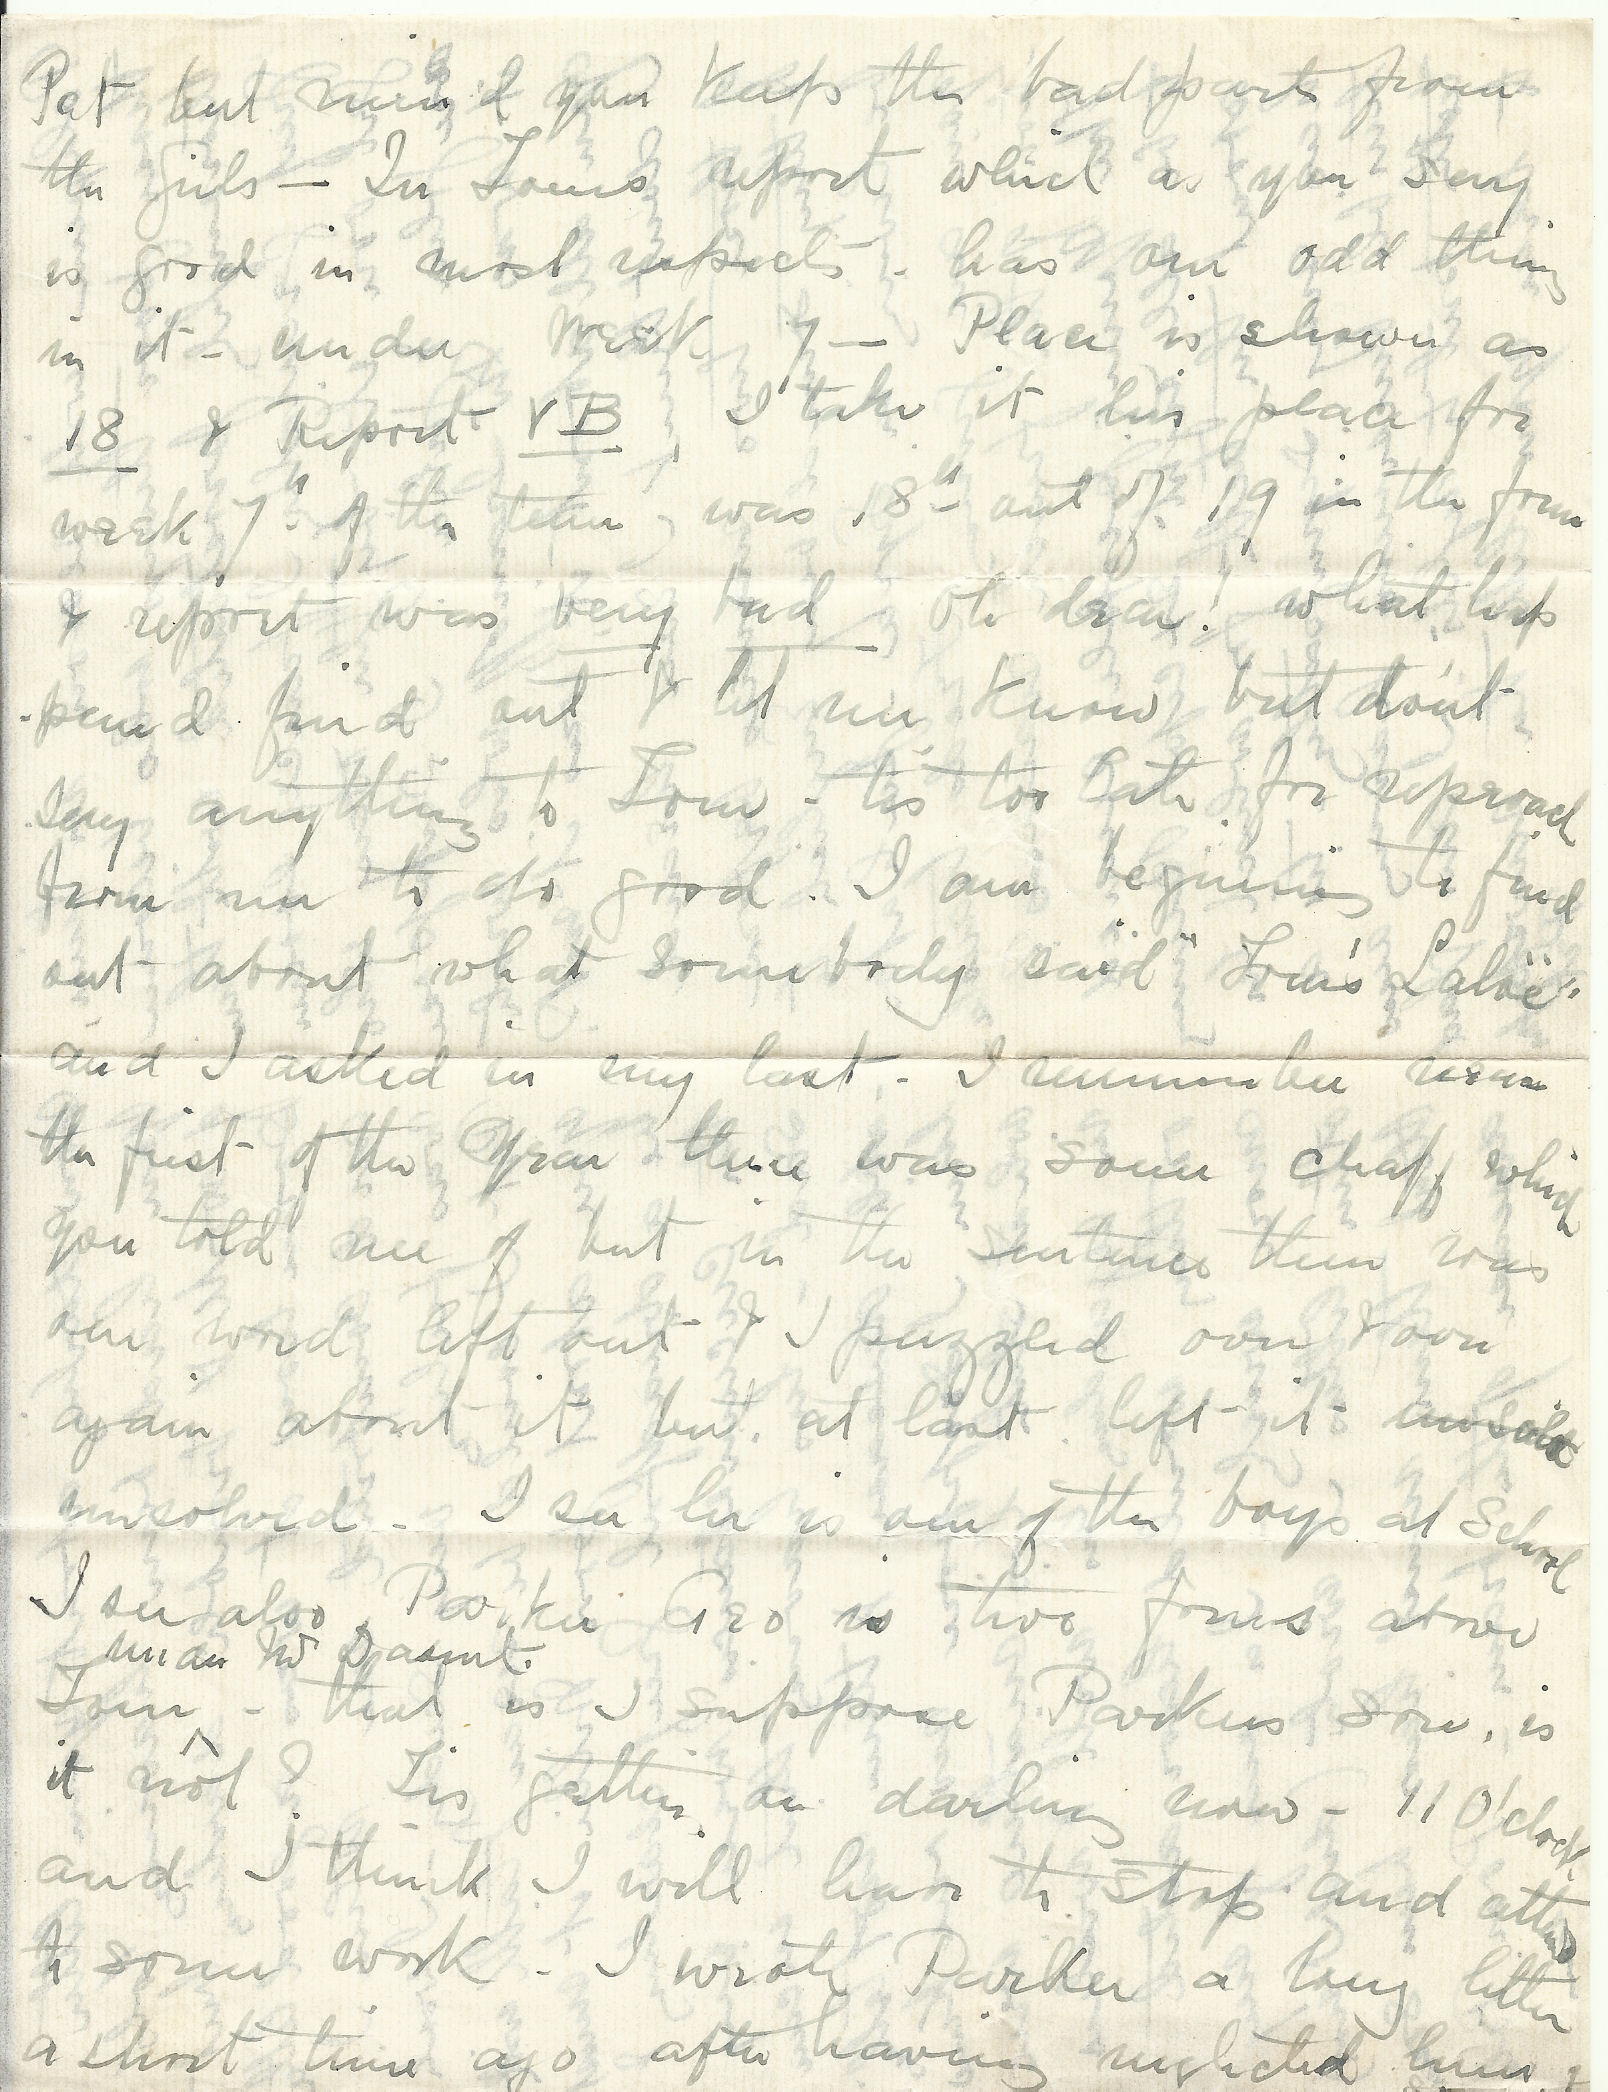 Pat but mind you keep the bad part from
the girls — In Tom's report which as you say
is good in most respects - has one odd thing
in it - under Week 7 — Place is shown as
18 & Report VB, I take it his place for
week 7th of the term, was 18th out of 19 in the form
& report was very bad oh dear! what hap
-pened find out & let me know, but don't
say anything to Tom - tis too late for reproach
from me to do good. I am begining to find
out about what somebody said "Tom's Laloë"
and I asked in my last. - I remember near
the first of the Year there was some chaff which
you told me of but in the sentence there was
one word left out & I puzzled over & over
again about it but at last left it
unsolved - I see he is one of the boys at School
I see also Parker Geo is two forms above
mean
Tom - that is I suppose Parkers son, is
it not? Tis getting on darling now - 11 O'clock
and I think I will have to stop and attend
to some work - I wrote Parker a long letter
a short time ago after having neglected him